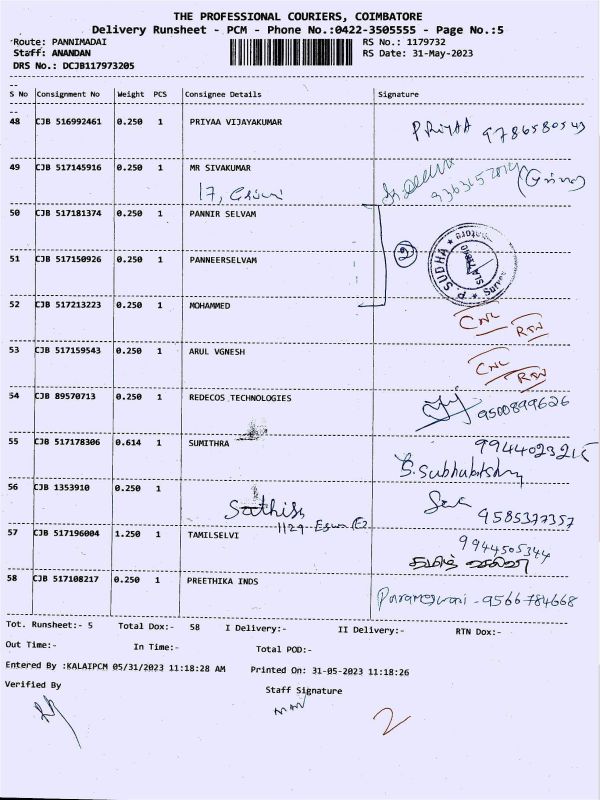 THE PROFESSIONAL COURIERS, COIMBATORE
Delivery Runsheet - PCM - Phone No.:0422-3505555 - Page No.:5
Route: PANNIMADAI RS No.: 1179732
Staff: ANANDAN RS Date: 31-May-2023
DRS No.: DCJB117973205
S No Consignment No Weight PCS Consignee Details Signature
48 CJB 516992461 0.250 1 PRIYAA VIJAYAKUMAR PRIYAA 9786580543
49 CJB 517145916 0.250 1 MR SIVAKUMAR
17,
50 CJB 517181374 0.250 1 PANNIR SELVAM
P. SUDHA
51 CJB 517150926 0.250 1 PANNEERSELVAM
52 CJB 517213223 0.250 1 MOHAMMED CNL
RTN
53 CJB 517159543 0.250 1 ARUL VGNESH CNL
RTN
54 CJB 89570713 0.250 1 REDECOS TECHNOLOGIES 9500899626
55 CJB 517178306 0.614 1 SUMITHRA
56 CJB 1353910 0.250 1
Sathiss 9585377357
1129
57 CJB 517196004 1.250 1 TAMILSELVI 9944505344
58 CJB 517108217 0.250 1 PREETHIKA INDS Parameswari - 9566784668
Tot. Runsheet:- 5 Total Dox:- 58 I Delivery:- II Delivery:- RTN Dox:-
Out Time:- In Time:- Total POD:-
Entered By :KALAIPCM 05/31/2023 11:18:28 AM Printed On: 31-05-2023 11:18:26
Verified By Staff Signature
2